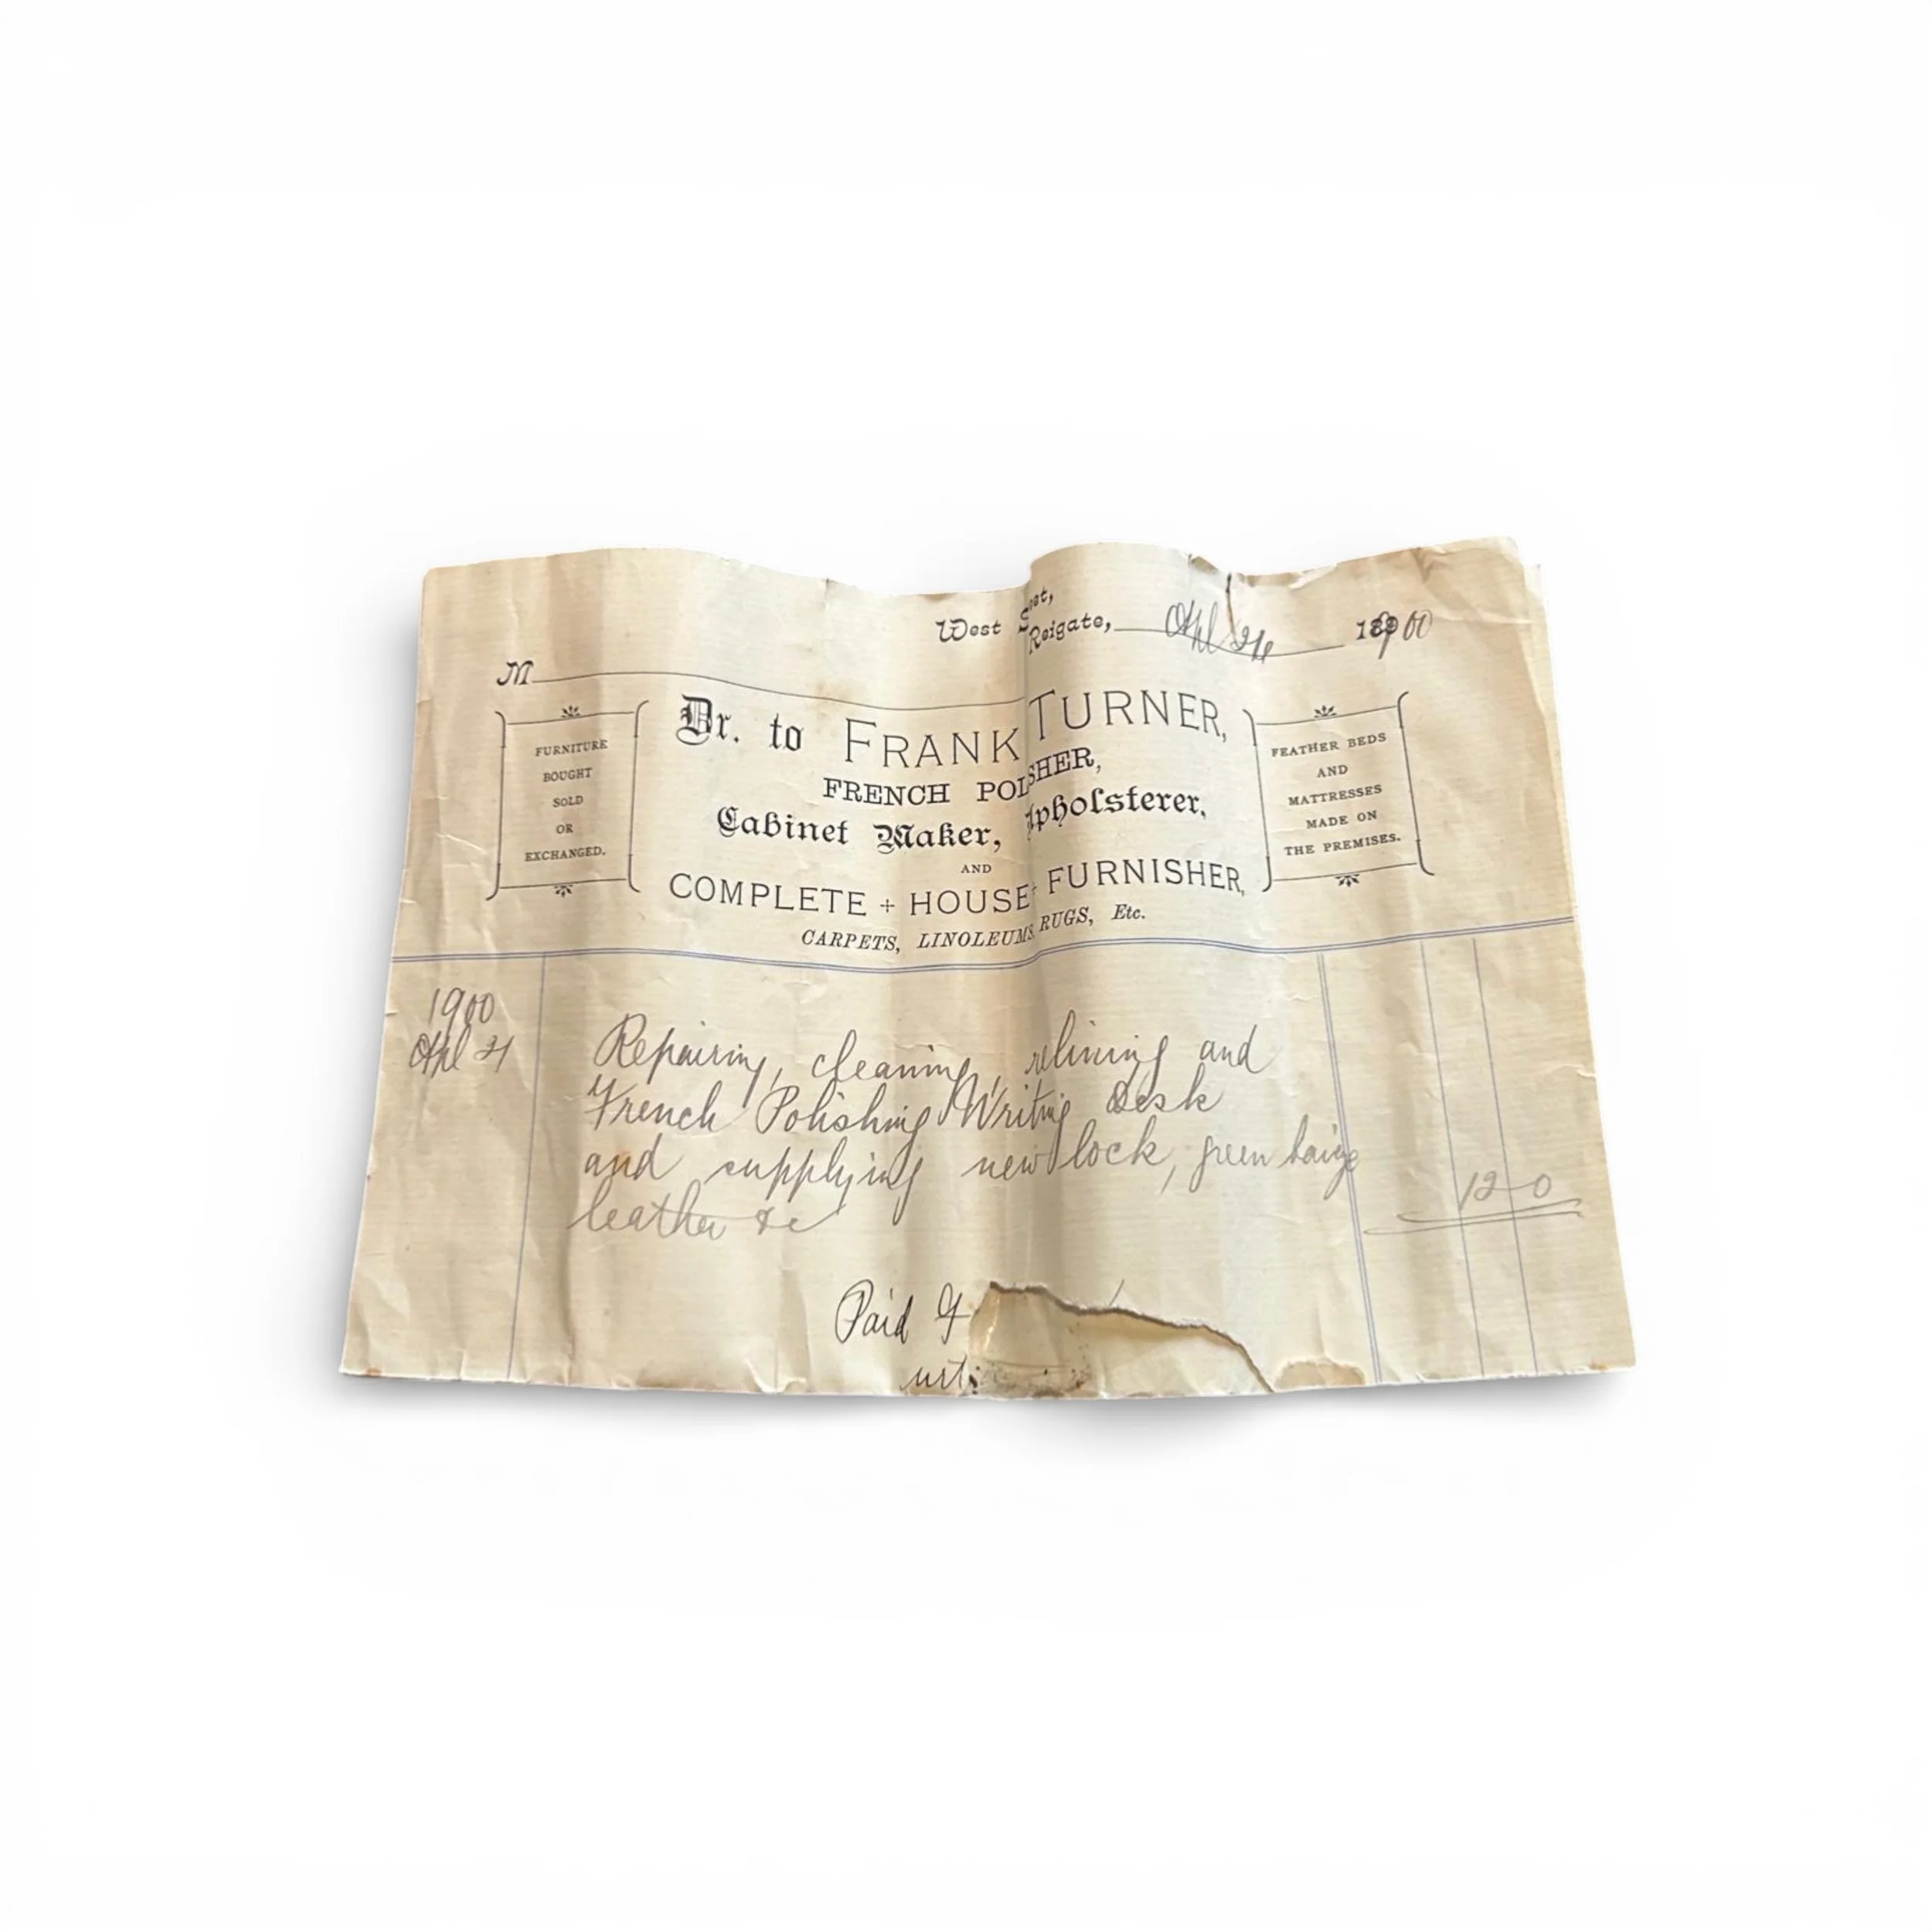 West Street,
Reigate, Apl 24 1900
M
Dr. to FRANK TURNER,
FRENCH POLISHER,
Cabinet Maker, Upholsterer,
AND
COMPLETE + HOUSE + FURNISHER,
CARPETS, LINOLEUMS, RUGS, Etc.
FURNITURE
BOUGHT
SOLD
OR
EXCHANGED.
FEATHER BEDS
AND
MATTRESSES
MADE ON
THE PREMISES.
1900
Apl 21
Repairing, cleaning, relining and
French Polishing Writing Desk
and supplying new lock, green baize
leather &c
12 0
Paid F